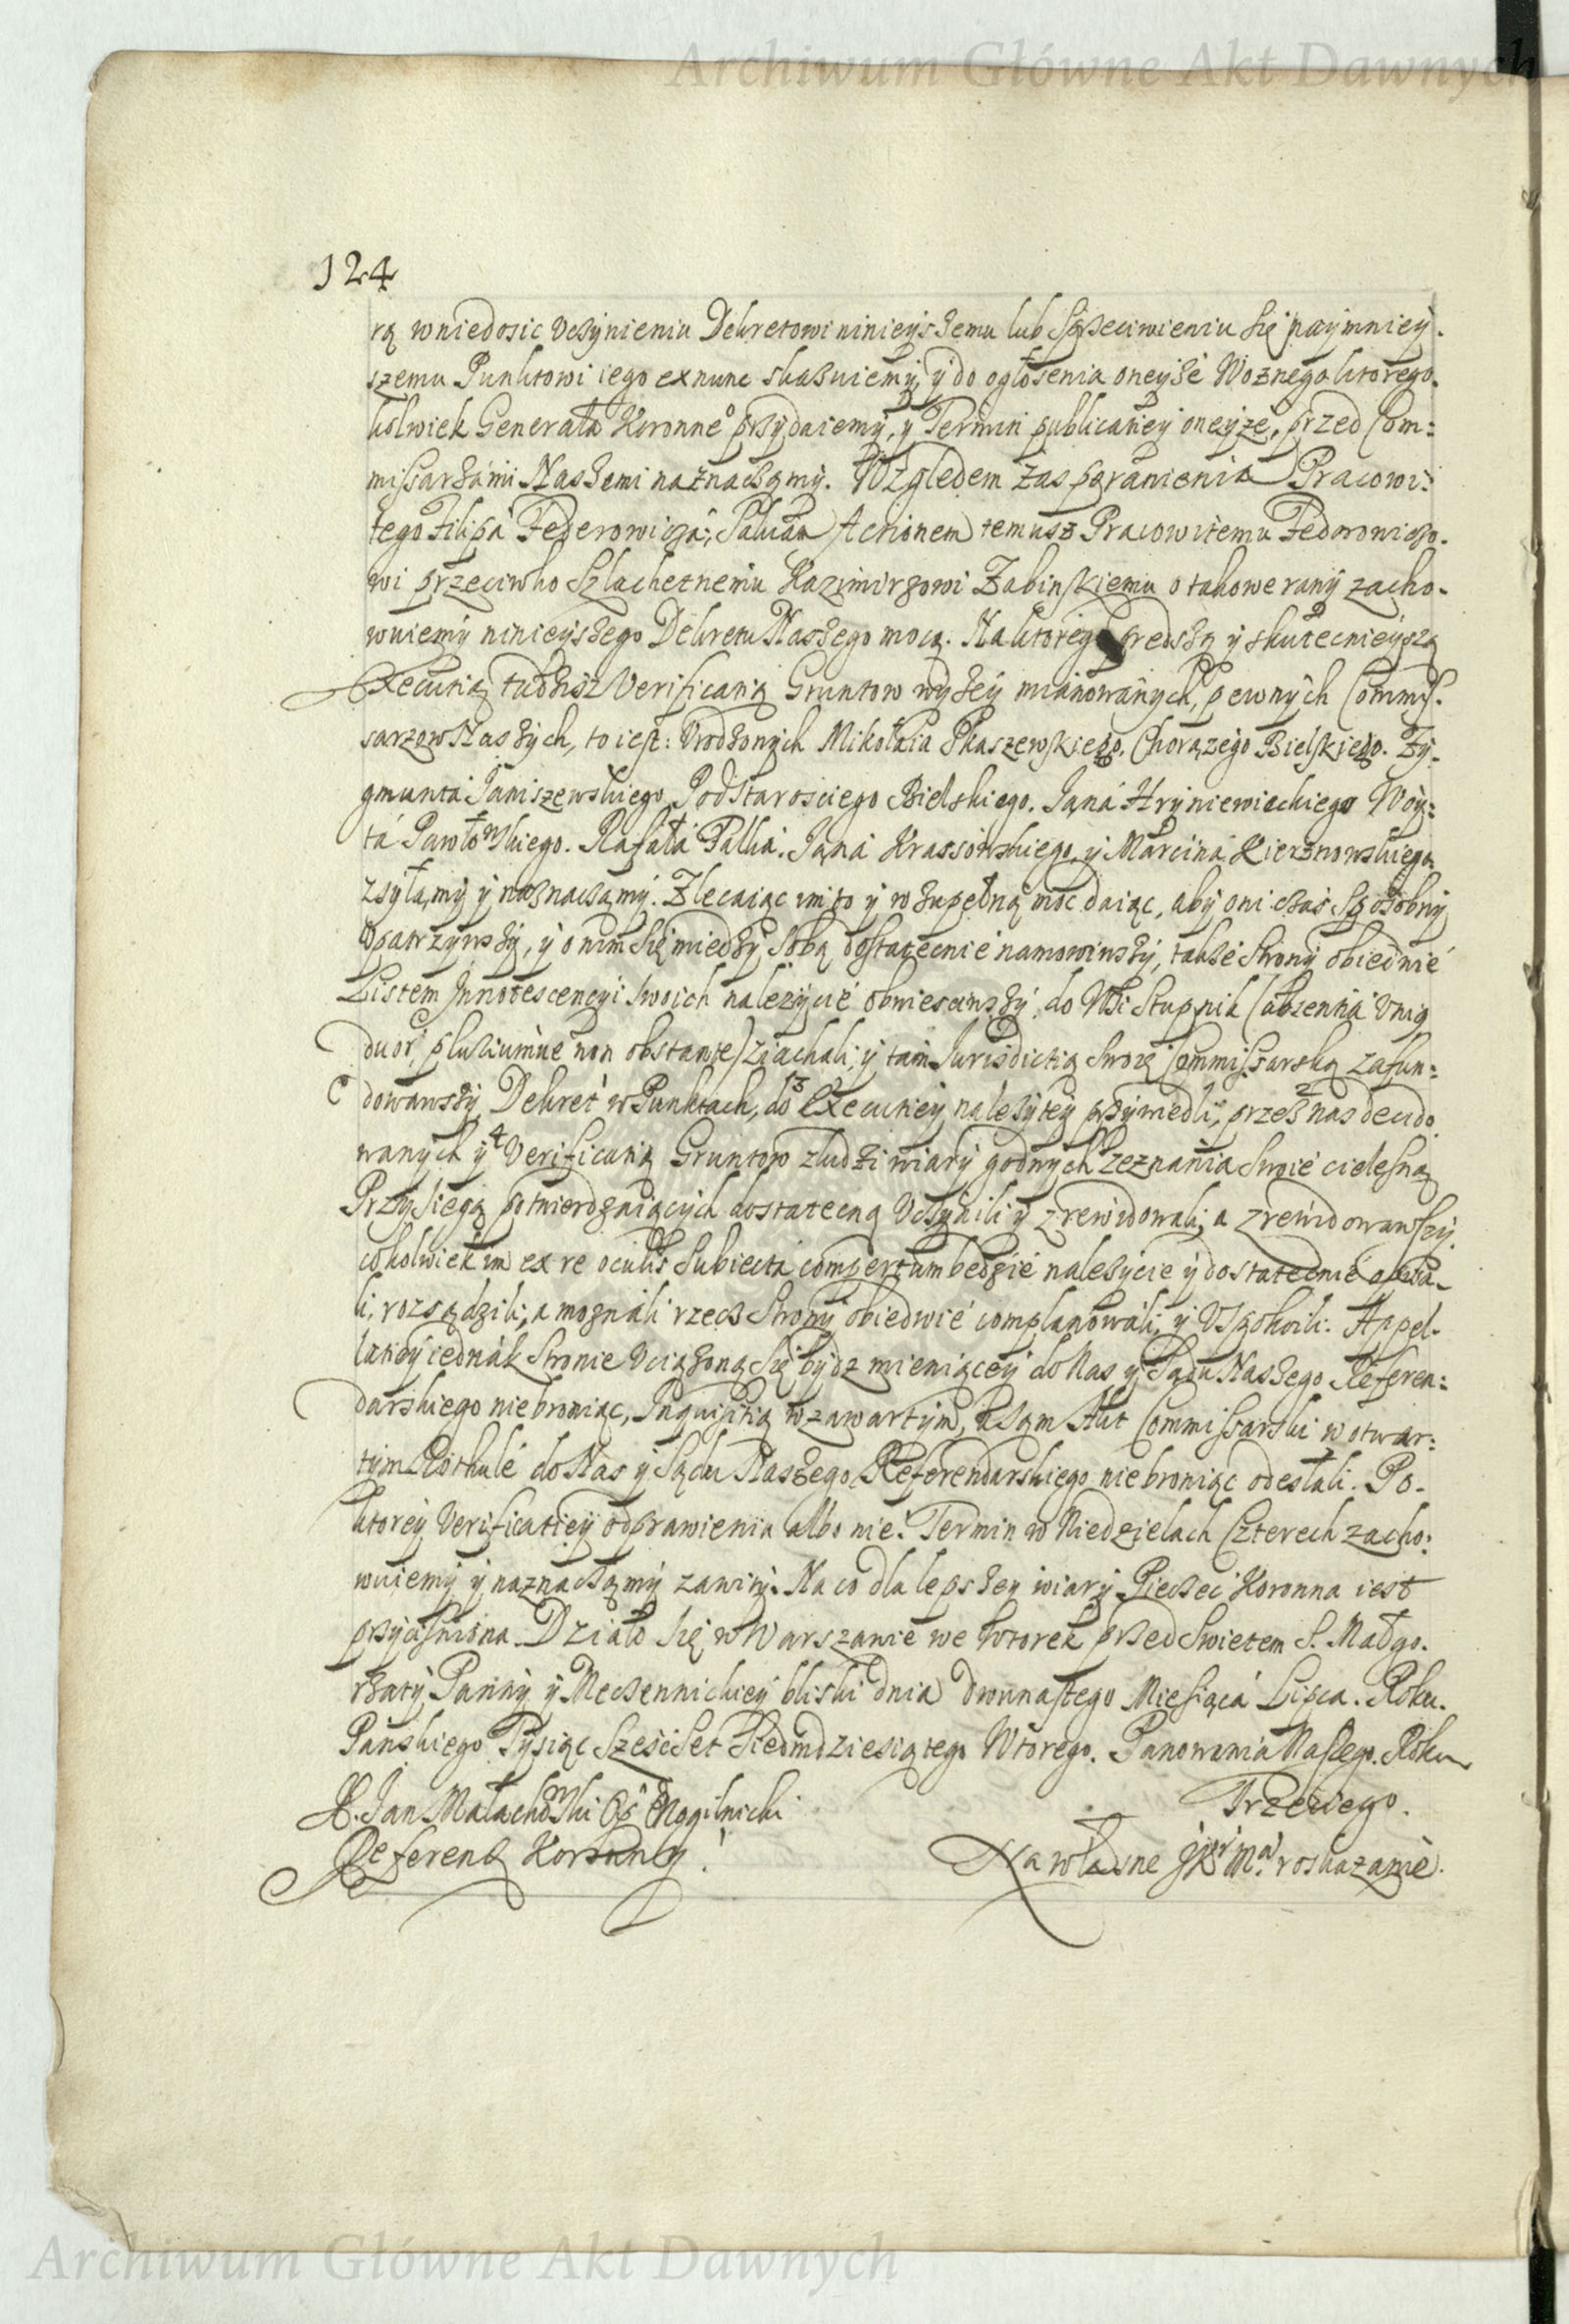 Archiwum Główne Akt Dawnych
124
rą w niedosic uczynieniu Dekretowi ninieyszemu lub sprzeciwieniu się naymniey-
szemu Punktowi iego ex nunc skazuiemy, y do ogłoszenia oneyże Woznego ktorego-
kolwiek Generała Koronneo przydaiemy, y Termin publicatiey oneyże, przed Com=
missarzami Naszemi naznaczamy. Względem zaś poranienia Pracowi=
tego Filipa Federowicza, Salvam Actionem temusz Pracowitemu Fedorowiczo-
wi przeciwko Szlachetnemu Kazimirzowi Zabinskiemu o takowe rany zacho-
wuiemy ninieyszego Dekretu Naszego mocą. Na ktorego predszą y skutecznieyszą
Executią tudzisz Verificatią Gruntow wyżey mianowanych, pewnych Commis-
sarzow Naszych, to iest: Urodzonych Mikołaia Skaszewskiego, Chorążego Bielskiego. Zy-
gmunta Janiszewskiego Podstarosciego Bielskiego. Jana Hryniewieckiego Woy=
ta Pawłowskiego. Rafała Palka. Jana Krassowskiego, y Marcina Kierznowskiego
zsyłamy y naznaczamy. Zlecaiąc im to y w zupełną moc daiąc, aby oni czas sposobny
upatrzywszy, y o nim się miedzy sobą dostatecznie namowiwszy, także Strony obiedwie
Listem Innotescencyi swoich należycie obwiesciwszy, do Wsi Stupnik (absentia unig
duor, pluriumve non obstante) ziachali, y tam Jurisdictią swoię Commissarską zafun=
dowawszy Dekret w Punktach, do Executiey należytey przywiedli, przez nas decido
wanych y Verificatią Gruntow z ludzi wiary godnych zeznania swoie cielesną
Przysięgą potwierdzaiących dostateczną uczynili y zrewidowali; a zrewidowawszy
cokolwiek im ex re oculis subiecta compertum bedzie należycie y dostatecznie
li, rozsądzili, a możnali rzecz Strony obiedwie complanowali, y uspokoili. Appel-
latiey iednak Stronie uciążoną się bydz mieniącey do Nas y Sądu Naszego Referen=
darskiego nie broniąc, Inquisitią w zawartym, a sąm Akt Commissarski w otwar=
tym Rothule do Nas y Sądu Naszego Referendarskiego nie broniąc odesłali. Po-
ktorey Verificatiey odprawieniu albo nie: Termin w Niedzielach Czterech zacho=
wuiemy y naznaczamy zawity. Na co dla lepszey wiary Pieczec Koronna iest
przycisniona. Działo się w Warszawie we Wtorek przed Swietem S. Małgo-
rzaty Panny y Meczennickiey bliski dnia dwunastego Miesiąca Lipca. Roku.
Pańskiego Tysiąc Szescset Siedmdziesiątego Wtorego. Panowania Naszego. Roku
Trzeciego.
X. Jan Małachowski Op Mogilnicki
Referend Koronny.
Na własne JKr Mci roskazanie.
Archiwum Główne Akt Dawnych